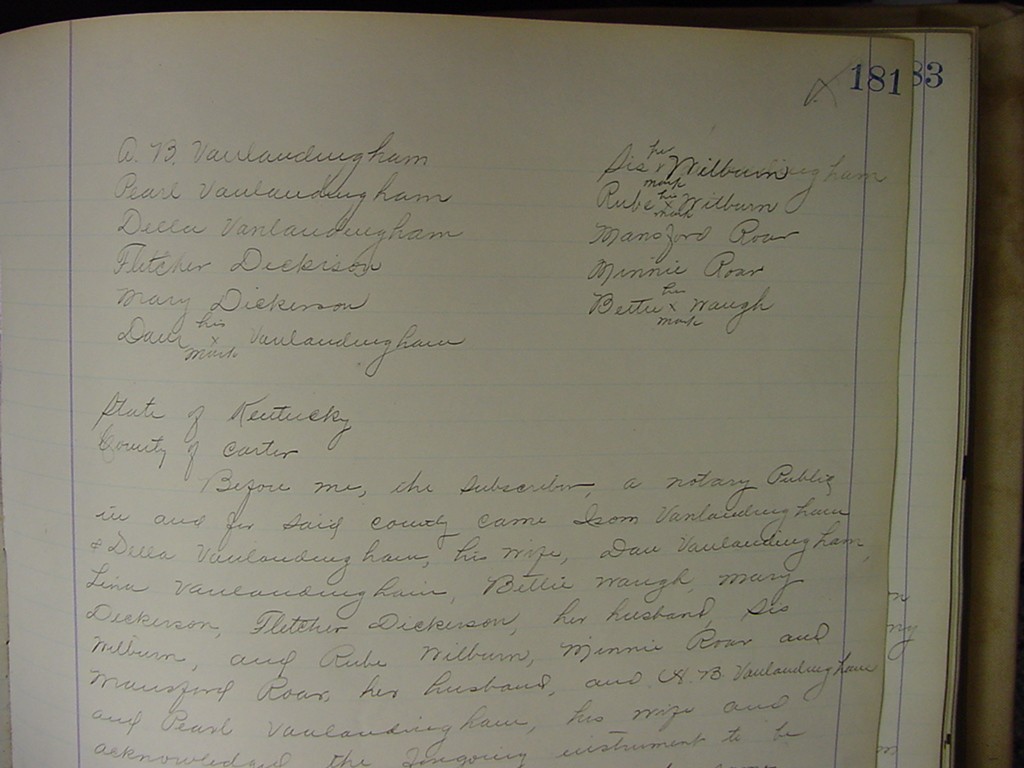 181
83
A. B. Vanlandingham
Pearl Vanlandingham
Della Vanlandingham
Fletcher Dickison
Mary Dickerson
Dan his x mark Vanlandingham
Sis her x mark Wilburn
Rube his x mark Wilburn
Mansford Roar
Minnie Roar
Bettie her x mark Waugh
State of Kentucky
County of Carter
Before me, the subscriber, a notary Public
in and for said county came Isom Vanlandingham
& Della Vanlandingham, his wife, Dan Vanlandingham,
Lina Vanlandingham, Bettie Waugh, Mary
Dickerson, Fletcher Dickerson, her husband, Sis
Wilburn, and Rube Wilburn, Minnie Roar and
Mansford Roar, her husband, and A. B. Vanlandingham
and Pearl Vanlandingham, his wife and
acknowledged the foregoing instrument to be